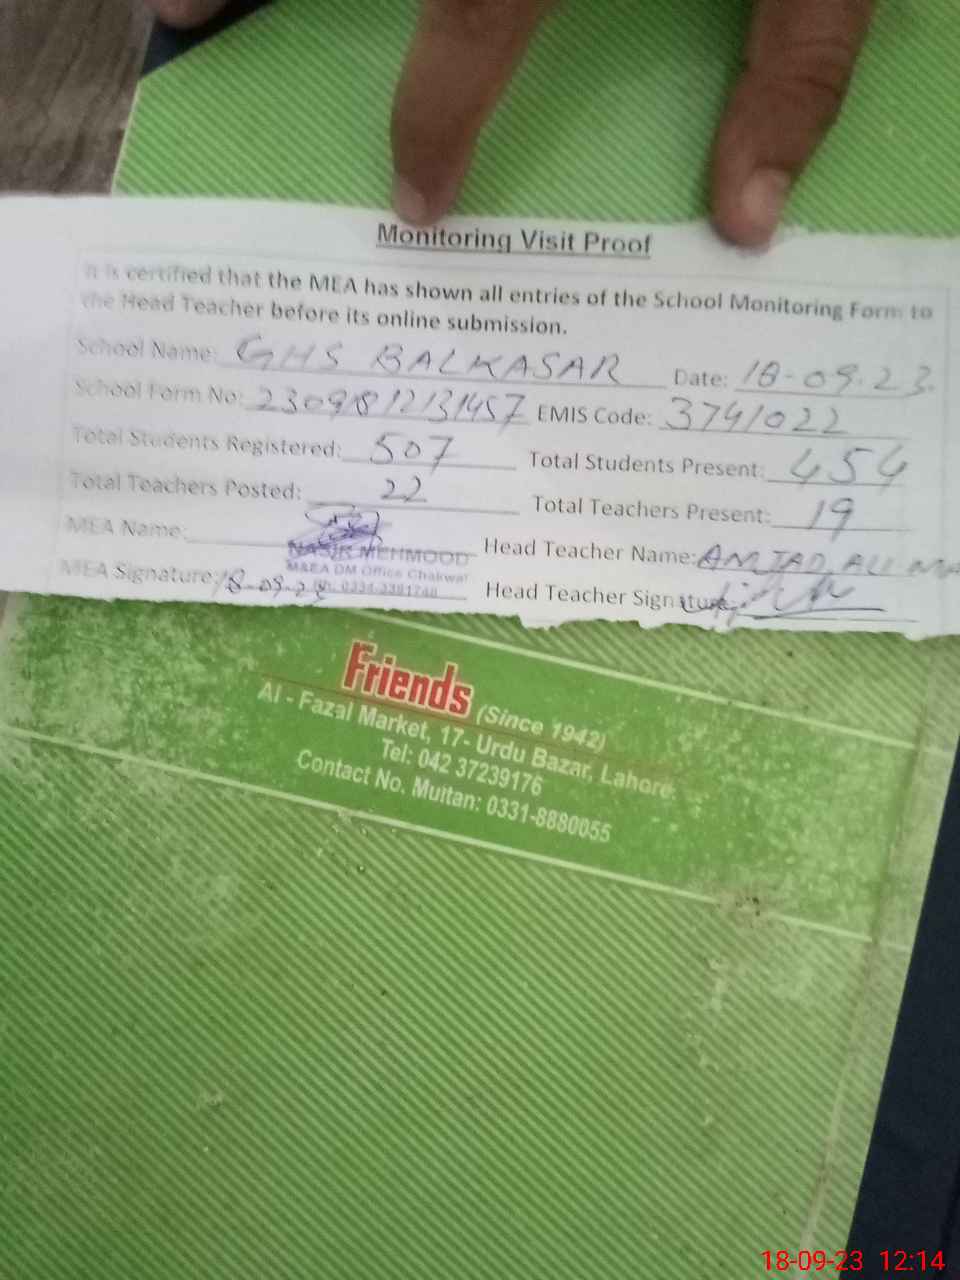 Monitoring Visit Proof
It is certified that the MEA has shown all entries of the School Monitoring Form to
the Head Teacher before its online submission.
School Name: GHS BALKASAR Date: 18-09-23
School Form No: 23091812131457 EMIS Code: 3741022
Total Students Registered: 507 Total Students Present: 454
Total Teachers Posted: 22 Total Teachers Present: 19
MEA Name: NASIR MEHMOOD Head Teacher Name: AMJAD ALI
M&EA DM Office Chakwal
MEA Signature: 18-09-23 Head Teacher Signature:
Friends (Since 1942)
Al - Fazal Market, 17- Urdu Bazar, Lahore
Tel: 042 37239176
Contact No. Multan: 0331-8880055
18-09-23 12:14